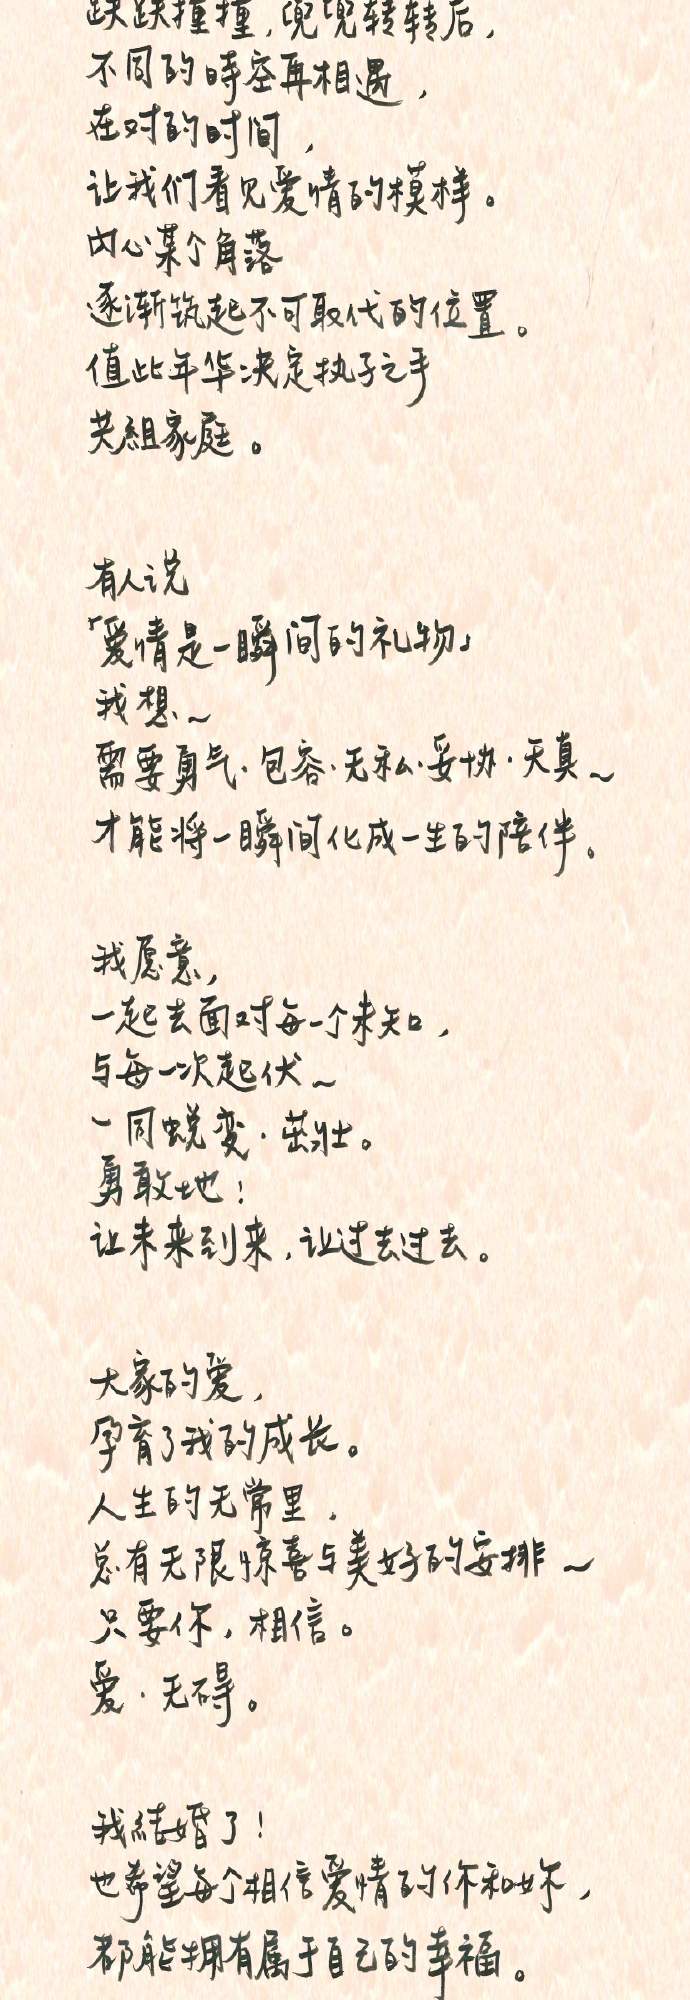 跌跌撞撞，兜兜转转后，
不同的時空再相遇，
在对的时间，
让我们看见爱情的模样。
内心某个角落
逐渐筑起不可取代的位置。
值此年华决定执子之手
共組家庭。
有人说
「爱情是一瞬间的礼物」
我想～
需要勇气·包容·无私·妥协·天真～
才能将一瞬间化成一生的陪伴。
我愿意，
一起去面对每一个未知，
与每一次起伏～
一同蜕变·茁壮。
勇敢地！
让未来到来，让过去过去。
大家的爱，
孕育了我的成长。
人生的无常里，
总有无限惊喜与美好的安排～
只要你，相信。
爱·无碍。
我結婚了！
也希望每个相信爱情的你和妳，
都能拥有属于自己的幸福。